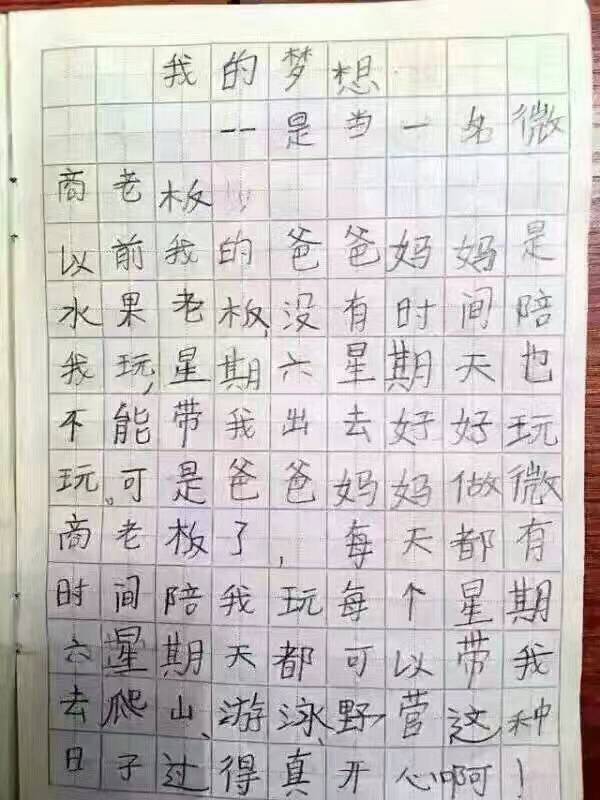 我的梦想
--是当一名微
商老板
以前我的爸爸妈妈是
水果老板,没有时间陪
我玩,星期六星期天也
不能带我出去好好玩
玩。可是爸爸妈妈做微
商老板了,每天都有
时间陪我玩每个星期
六星期天都可以带我
去爬山、游泳、野营这种
日子过得真开心啊!